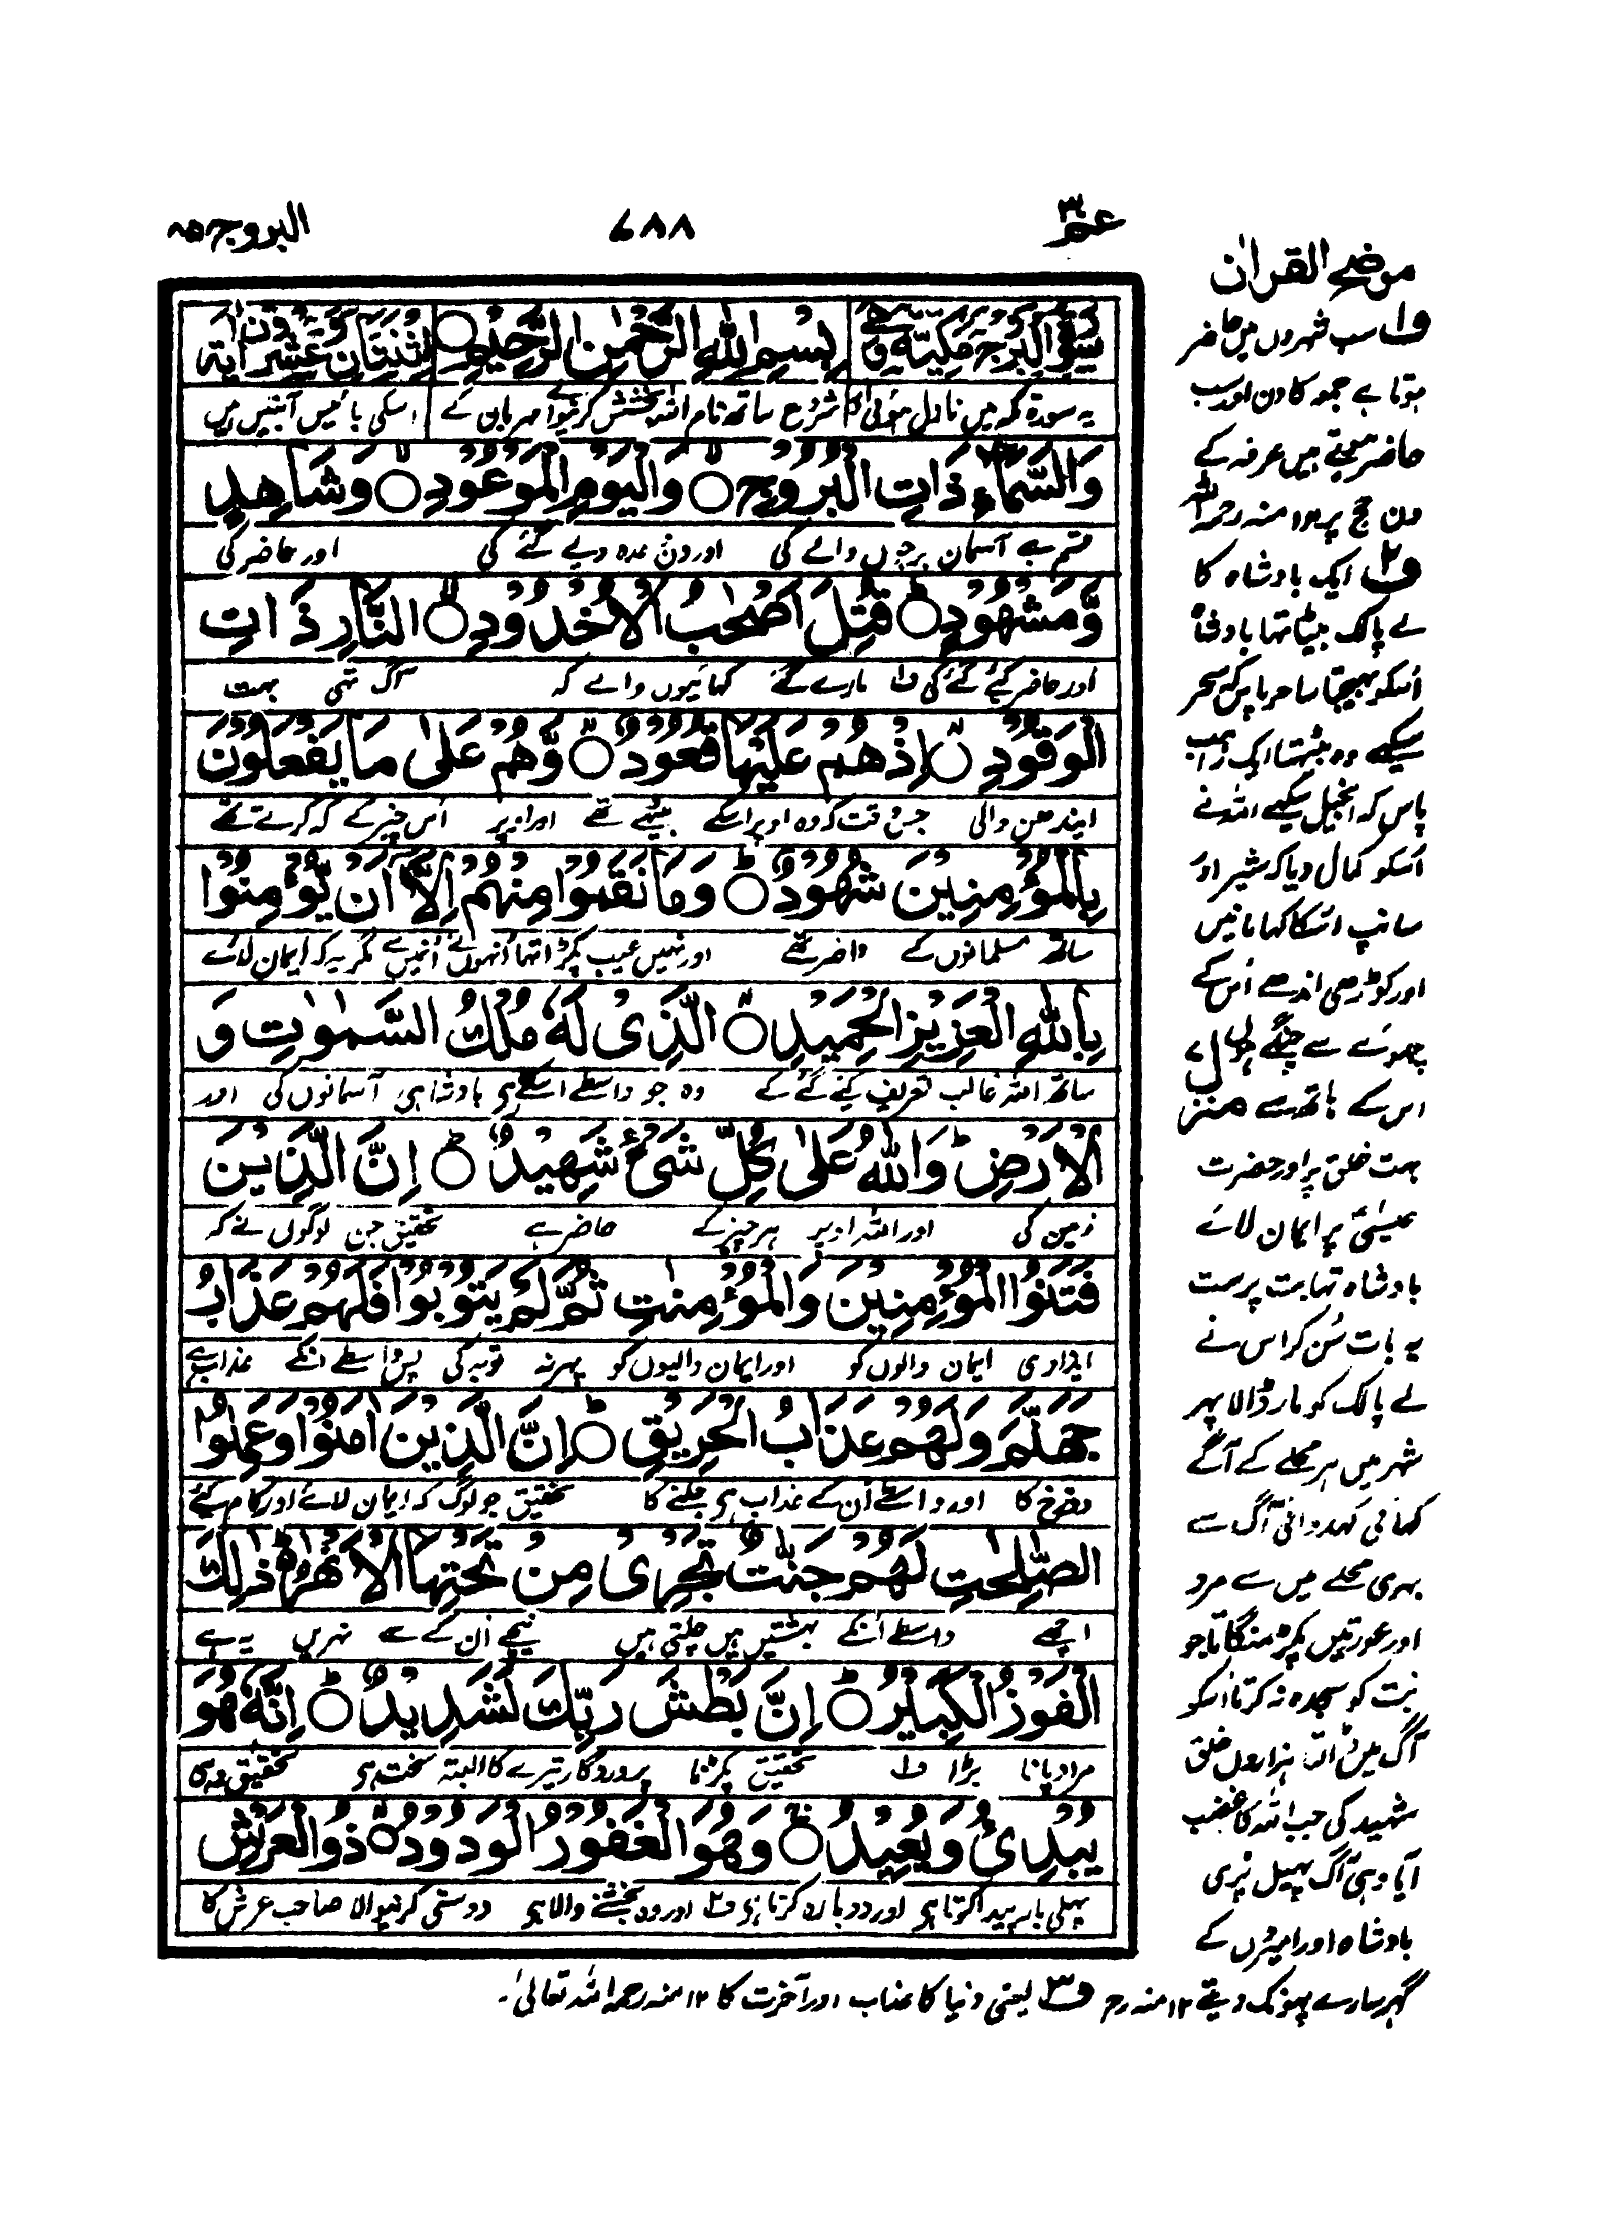 عم ۳۰
۶۸۸
البروج ۸۵
سورة البروج مكية و
بِسْمِ اللّٰهِ الرَّحْمٰنِ الرَّحِيْمِ
اثنتان وعشرون اية
یہ سورۃ مکہ میں نازل ہوئی
شروع ساتھ نام اللہ بخشش کرنیوالے مہربان کے
اسکی بائیس آیتیں ہیں
وَالسَّمَآءِ ذَاتِ الْبُرُوْجِ ۙ وَالْيَوْمِ الْمَوْعُوْدِ ۙ وَشَاهِدٍ
قسم ہے آسمان برجوں والے کی اور دن وعدہ دیے گئے کی اور حاضر کی
وَّمَشْهُوْدٍ ؕ قُتِلَ اَصْحٰبُ الْاُخْدُوْدِ ۙ النَّارِ ذَاتِ
اور حاضر کیے گئے کی ف۱ مارے گئے کھائیوں والے کہ آگ تھی بہت
الْوَقُوْدِ ۙ اِذْ هُمْ عَلَيْهَا قُعُوْدٌ ۙ وَّهُمْ عَلٰى مَا يَفْعَلُوْنَ
ایندھن والی جس وقت کہ وہ اوپر اسکے بیٹھے تھے اور اوپر اس چیز کے کہ کرتے تھے
بِالْمُؤْمِنِيْنَ شُهُوْدٌ ؕ وَمَا نَقَمُوْا مِنْهُمْ اِلَّآ اَنْ يُّؤْمِنُوْا
ساتھ مسلمانوں کے حاضر تھے اور نہیں عیب پکڑا تھا اُنہوں نے اُنمیں سے مگر یہ کہ ایمان لائے
بِاللّٰهِ الْعَزِيْزِ الْحَمِيْدِ ۙ الَّذِىْ لَهٗ مُلْكُ السَّمٰوٰتِ وَ
ساتھ اللہ غالب تعریف کیے گئے کے وہ جو واسطے اسکے ہی بادشاہی آسمانوں کی اور
الْاَرْضِ ؕ وَاللّٰهُ عَلٰى كُلِّ شَىْءٍ شَهِيْدٌ ؕ اِنَّ الَّذِيْنَ
زمین کی اور اللہ اوپر ہر چیز کے حاضر ہے تحقیق جن لوگوں نے کہ
فَتَنُوا الْمُؤْمِنِيْنَ وَالْمُؤْمِنٰتِ ثُمَّ لَمْ يَتُوْبُوْا فَلَهُمْ عَذَابُ
ایذا دی ایمان والوں کو اور ایمان والیوں کو پھر نہ توبہ کی پس واسطے انکے عذاب ہے
جَهَنَّمَ وَلَهُمْ عَذَابُ الْحَرِيْقِ ؕ اِنَّ الَّذِيْنَ اٰمَنُوْا وَعَمِلُوا
دوزخ کا اور واسطے اُن کے عذاب ہی جلنے کا تحقیق جو لوگ کہ ایمان لائے اور کام کیے
الصّٰلِحٰتِ لَهُمْ جَنّٰتٌ تَجْرِىْ مِنْ تَحْتِهَا الْاَنْهٰرُ ؕ ذٰلِكَ
اچھے واسطے اُنکے بہشتیں ہیں چلتی ہیں نیچے اُن کے سے نہریں یہ ہے
الْفَوْزُ الْكَبِيْرُ ؕ اِنَّ بَطْشَ رَبِّكَ لَشَدِيْدٌ ؕ اِنَّهٗ هُوَ
مراد پانا بڑا ف۳ تحقیق پکڑنا پروردگار تیرے کا البتہ سخت ہی تحقیق وہی
يُبْدِئُ وَيُعِيْدُ ۚ وَهُوَ الْغَفُوْرُ الْوَدُوْدُ ۙ ذُو الْعَرْشِ
پہلی بار پیدا کرتا ہی اور دوبارہ کرتا ہی اور وہ بخشنے والا ہی دوستی کرنیوالا صاحب عرش کا
موضح القرآن
ف۱ سب شہروں میں حاضر
ہوتا ہے جمعہ کا دن اور سب
حاضر ہوتے ہیں عرفہ کے
دن حج پر ۱۲ منہ رحمہ اللہ
ف۲ ایک بادشاہ کا
لے پالک بیٹا تھا بادشاہ
اُسکو بھیجتا ساحر پاس کہ سحر
سیکھے وہ بیٹھتا ایک راہب
پاس کہ انجیل سیکھے اللہ نے
اُسکو کمال دیا کہ شیر اور
سانپ اُسکا کہا مانیں
اور کوڑھی اندھے اُس کے
چھونے سے چنگے ہوں
اس کے ہاتھ سے
بہت خلق پر اور حضرت
عیسیٰ پر ایمان لائے
بادشاہ تھا بت پرست
یہ بات سُن کر اس نے
لے پالک کو مار ڈالا پھر
شہر میں ہر محلے کے آگے
کھائی کھدوائی آگ سے
بھری محلے میں سے مرد
اور عورتیں پکڑ منگاتا جو
بت کو سجدہ نہ کرتا اُسکو
آگ میں ڈالتا ہزاروں خلق
شہید کی جب اللہ کا غضب
آیا وہی آگ پھیل پڑی
بادشاہ اور امیروں کے
گھر سارے پھونک دیئے ۱۲ منہ رح ف۳ یعنی دنیا کا عذاب اور آخرت کا ۱۲ منہ رحمہ اللہ تعالیٰ۔